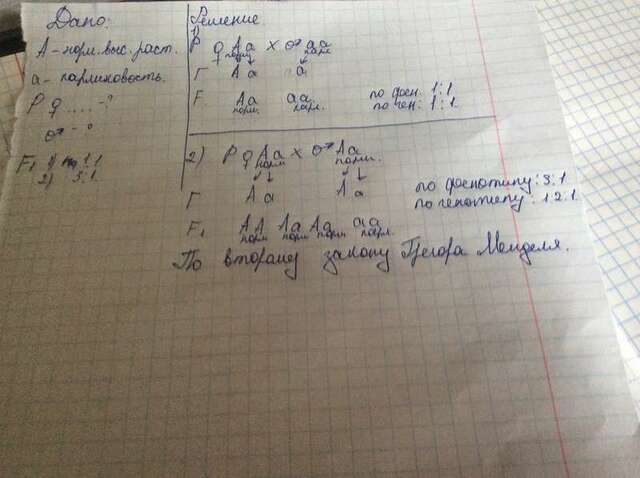 Дано:
А - норм. выс. раст.
а - карликовость.
Р ♀ ..... - ?
♂ - ?
F₁ 1) 1:1
2) 3:1
Решение.
1)
Р ♀ Аа х ♂ аа
норм карл
Г А а а
F₁ Аа аа
норм. карл.
по фен. 1:1
по ген: 1:1.
2) Р ♀ Аа х ♂ Аа
норм норм.
Г А а А а
F₁ АА Аа Аа аа
норм норм норм карл.
по фенотипу: 3:1
по генотипу: 1 2:1.
По второму закону Грегора Менделя.